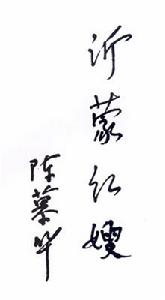 沂蒙红嫂
陈慕华